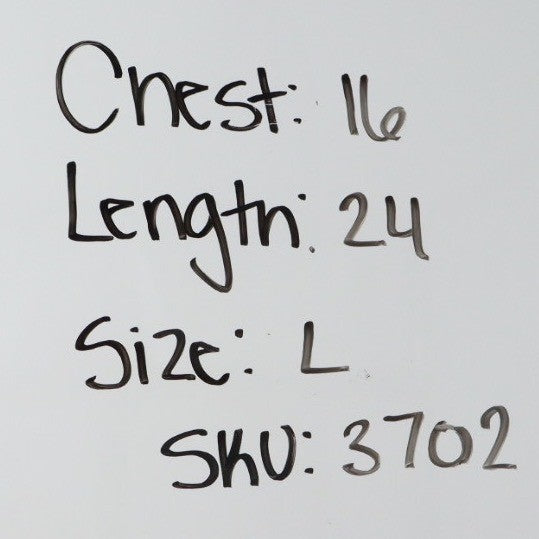 Chest: 16
Length: 24
Size: L
SKU: 3702